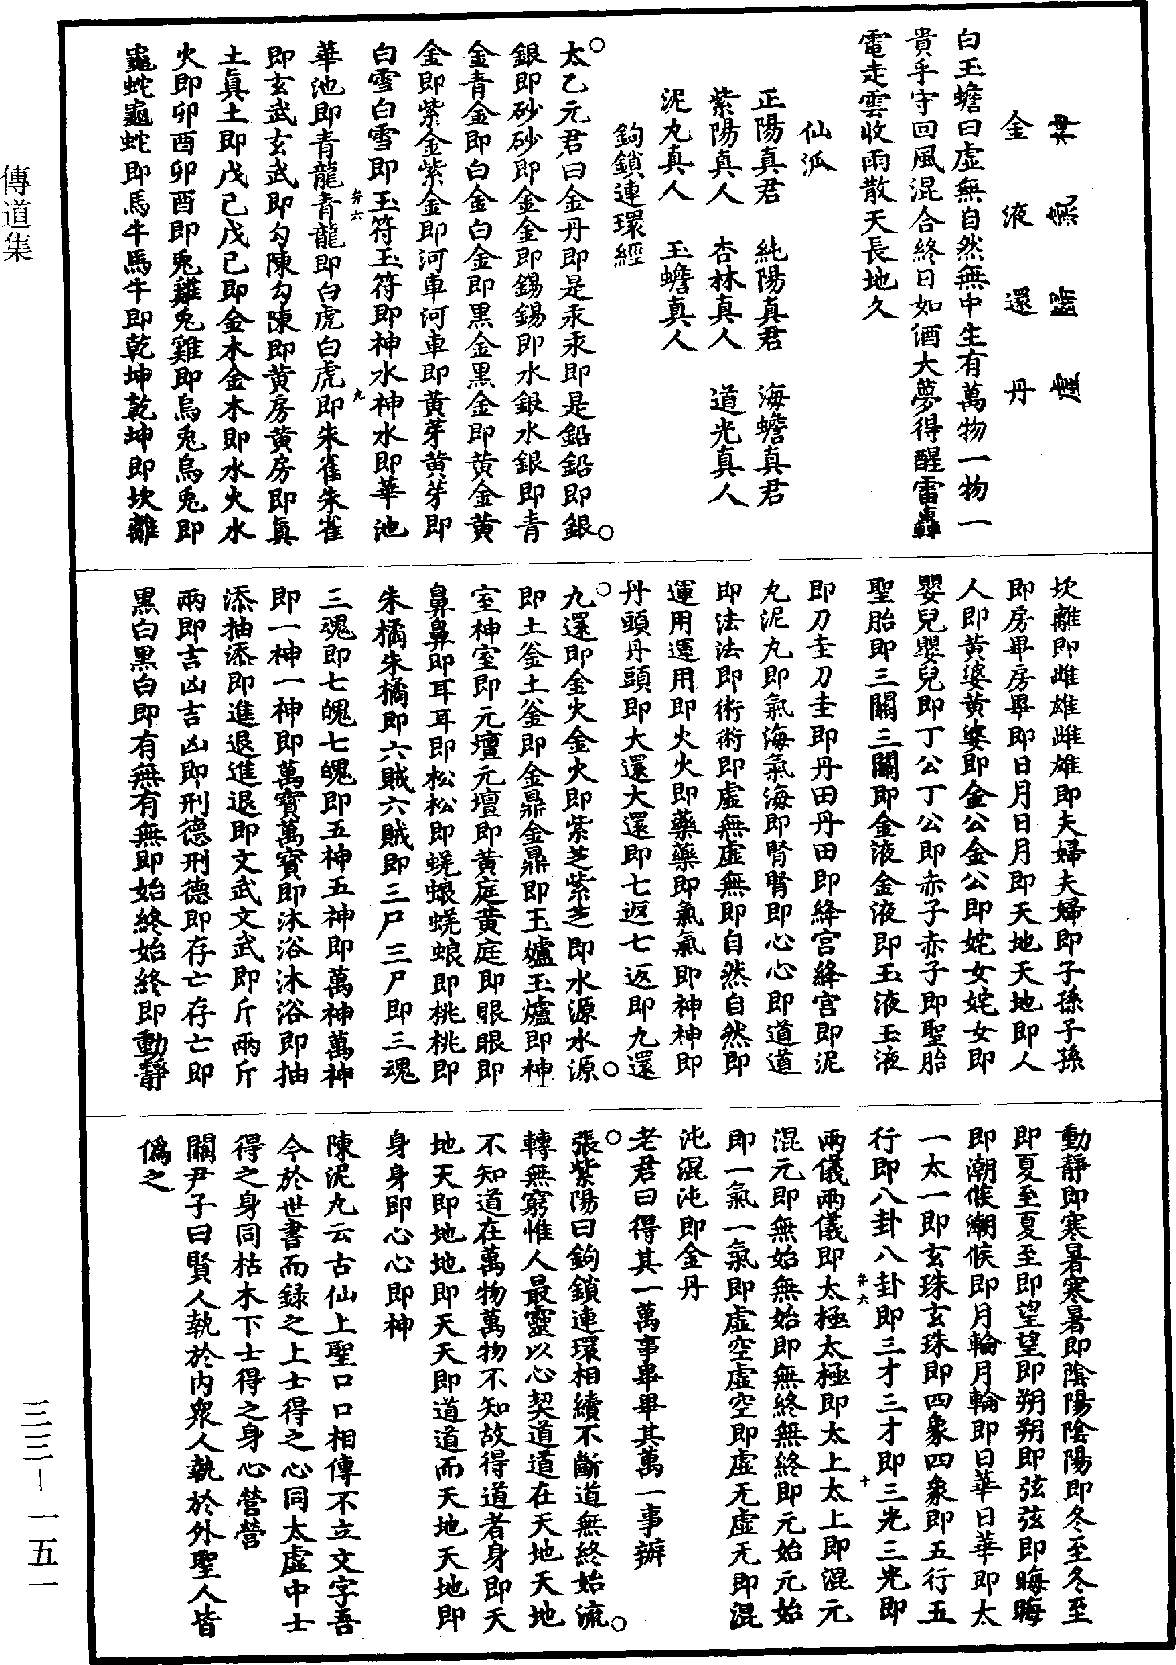 金液還丹
白玉蟾曰虛無自然無中生有萬物一物一
貴乎守回風混合終日如酒大夢得醒雷轟
電走雲收雨散天長地久
仙派
正陽真君 純陽真君 海蟾真君
紫陽真人 杏林真人 道光真人
泥丸真人 玉蟾真人
鉤鎖連環經
太乙元君曰金丹即是汞汞即是鉛鉛即銀
銀即砂砂即金金即錫錫即水銀水銀即青
金青金即白金白金即黑金黑金即黄金黄
金即紫金紫金即河車河車即黄芽黄芽即
白雪白雪即玉符玉符即神水神水即華池
華池即青龍青龍即白虎白虎即朱雀朱雀
即玄武玄武即勾陳勾陳即黄房黄房即真
土真土即戊己戊己即金木金木即水火水
火即卯酉卯酉即兎雞兎雞即烏兎烏兎即
龜蛇龜蛇即馬牛馬牛即乾坤乾坤即坎離
坎離即雌雄雌雄即夫婦夫婦即子孫子孫
即房畢房畢即日月日月即天地天地即人
人即黄婆黄婆即金公金公即姹女姹女即
嬰兒嬰兒即丁公丁公即赤子赤子即聖胎
聖胎即三關三關即金液金液即玉液玉液
即刀圭刀圭即丹田丹田即絳宮絳宮即泥
丸泥丸即氣海氣海即腎腎即心心即道道
即法法即術術即虛無虛無即自然自然即
運用運用即火火即藥藥即氣氣即神神即
丹頭丹頭即大還大還即七返七返即九還
九還即金火金火即紫芝紫芝即水源水源
即土釜土釜即金鼎金鼎即玉爐玉爐即神
室神室即元壇元壇即黄庭黄庭即眼眼即
鼻鼻即耳耳即松松即蜣蜋蜣蜋即桃桃即
朱橘朱橘即六賊六賊即三尸三尸即三魂
三魂即七魄七魄即五神五神即萬神萬神
即一神一神即萬寶萬寶即沐浴沐浴即抽
添抽添即進退進退即文武文武即斤兩斤
兩即吉凶吉凶即刑德刑德即存亡存亡即
黑白黑白即有無有無即始終始終即動靜
動靜即寒暑寒暑即陰陽陰陽即冬至冬至
即夏至夏至即望望即朔朔即弦弦即晦晦
即潮候潮候即月輪月輪即日華日華即太
一太一即玄珠玄珠即四象四象即五行五
行即八卦八卦即三才三才即三光三光即
兩儀兩儀即太極太極即太上太上即混元
混元即無始無始即無終無終即元始元始
即一氣一氣即虛空虛空即虛无虛无即混
沌混沌即金丹
老君曰得其一萬事畢畢其萬一事辦
張紫陽曰鉤鎖連環相續不斷道無終始流
轉無窮惟人最靈以心契道道在天地天地
不知道在萬物萬物不知故得道者身即天
地天即地地即天天即道道而天地天地即
身身即心心即神
陳泥丸云古仙上聖口口相傳不立文字吾
今於世書而録之上士得之心同太虛中士
得之身同枯木下士得之身心營營
關尹子曰賢人執於内衆人執於外聖人皆
僞之
傳道集
三三－一五一